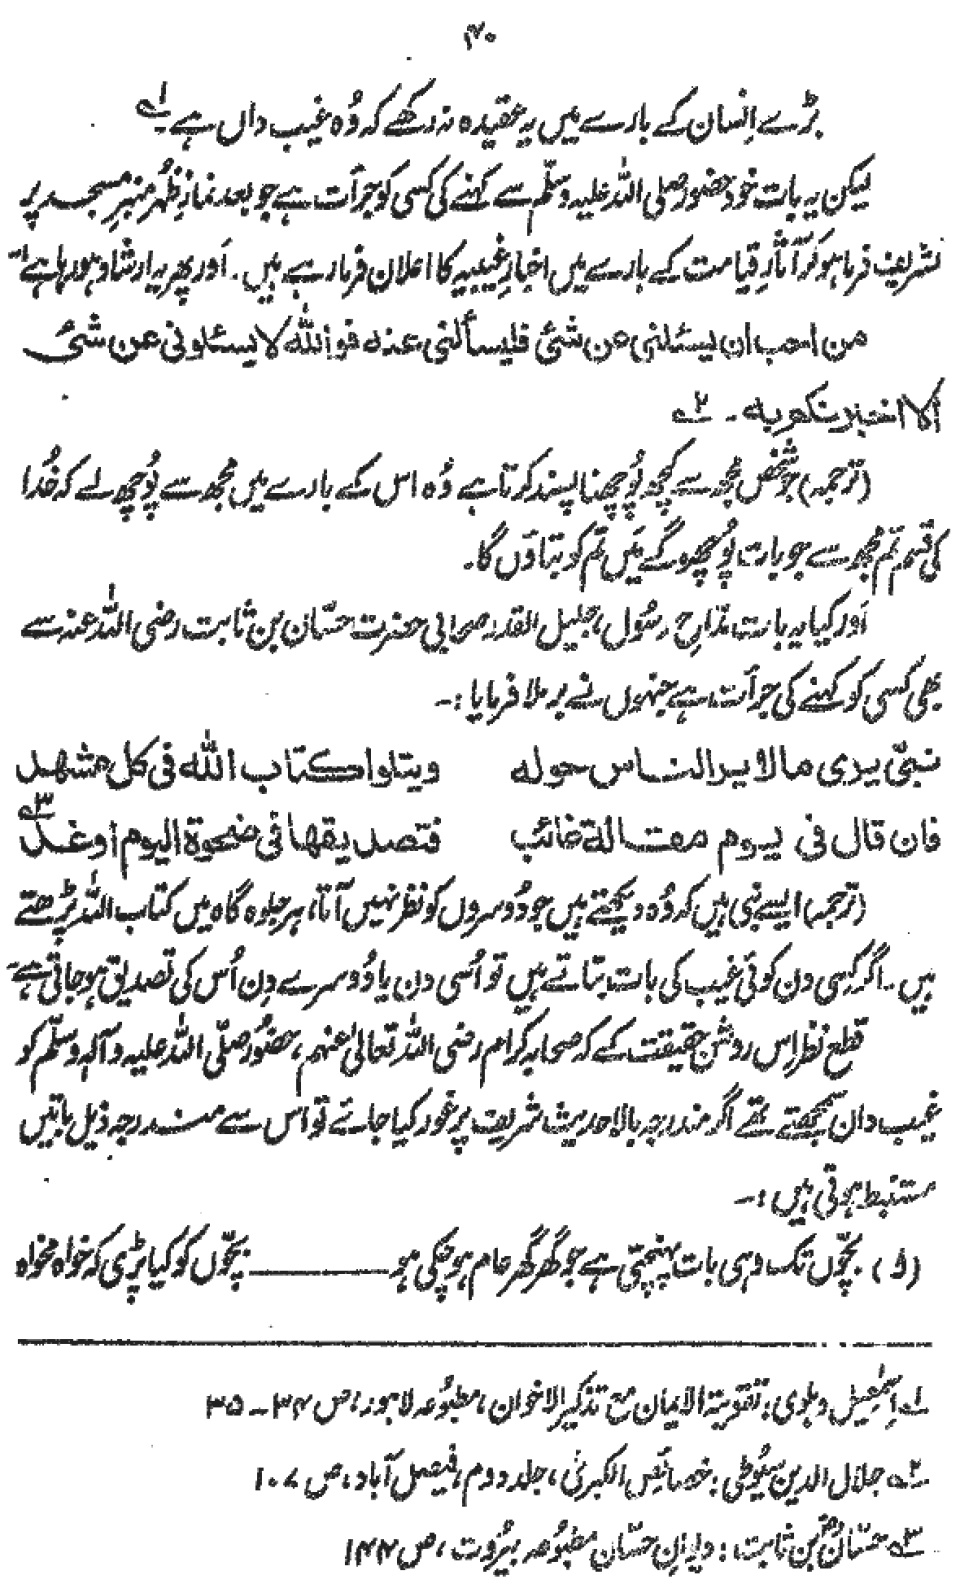 ۴۰
بڑے اِنسان کے بارے میں یہ عقیدہ نہ رکھے کہ وُہ غیب داں ہے ۱ے
لیکن یہ بات خود حضور صلی اللہ علیہ وسلّم سے کہنے کی کسی کو جرأت ہے جو بعد نمازِ ظہُر منبرِ مسجد پر
تشریف فرما ہو کر آثارِ قیامت کے بارے میں اخبارِ غیبیہ کا اعلان فرما رہے ہیں۔ اَور پھر یہ ارشاد ہو رہا ہے
من احب ان یسئلنی عن شئ فلیسألنی عنہ فواللہ لا یسئلونی عن شئ
الا اخبرتکم بہ ۔ ۲ے
(ترجمہ) جو شخص مجھ سے کچھ پُوچھنا پسند کرتا ہے وُہ اس کے بارے میں مجھ سے پُوچھ لے کہ خُدا
کی قسم تم مجھ سے جو بات پُوچھو گے مَیں تم کو بتاؤں گا۔
اَور کیا یہ بات مدّاحِ رسُول، جلیل القدر صحابی حضرت حسّان بن ثابت رضی اللہ عنہ سے
بھی کسی کو کہنے کی جرأت ہے جنہوں نے برملا فرمایا :-
نبیّ یری مالا یر الناس حولہ ویتلوا کتاب اللہ فی کل مشھد
فان قال فی یوم مقالۃ غائب فتصدیقھا فی ضحوۃ الیوم اوغد ۳ے
(ترجمہ) ایسے نبی ہیں کہ وُہ دیکھتے ہیں جو دُوسروں کو نظر نہیں آتا، ہر جلوہ گاہ میں کتاب اللہ پڑھتے
ہیں۔ اگر کِسی دن کوئی غیب کی بات بتاتے ہیں تو اُسی دن یا دُوسرے دِن اُس کی تصدیق ہو جاتی ہے
قطع نظر اِس روشن حقیقت کے کہ صحابہ کرام رضی اللہ تعالیٰ عنہم، حضُور صلّی اللہ علیہ وآلہٖ وسلّم کو
غیب دان سمجھتے تھے اگر مندرجہ بالا حدیث شریف پر غور کیا جائے تو اس سے مندرجہ ذیل باتیں
مستنبط ہوتی ہیں :-
(۱) بچّوں تک وہی بات پہنچتی ہے جو گھر گھر عام ہو چکی ہو ———— بچّوں کو کیا پڑی کہ خواہ مخواہ
۱ے اِسمٰعیل دہلوی : تقویۃ الایمان مع تذکیر الاخوان، مطبُوعہ لاہور، ص ۳۴-۳۵
۲ے جلال الدین سیُوطی : خصائص الکبریٰ، جلد دوم، فیصل آباد، ص ۱۰۷
۳ے حسّان بن ثابت : دیوانِ حسّان مطبُوعہ بیرُوت، ص ۱۴۴